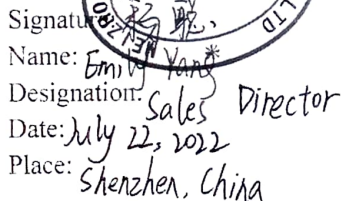 Signature
LTD
Name: Emily Yang
Designation: Sales Director
Date: July 22, 2022
Place: Shenzhen, China